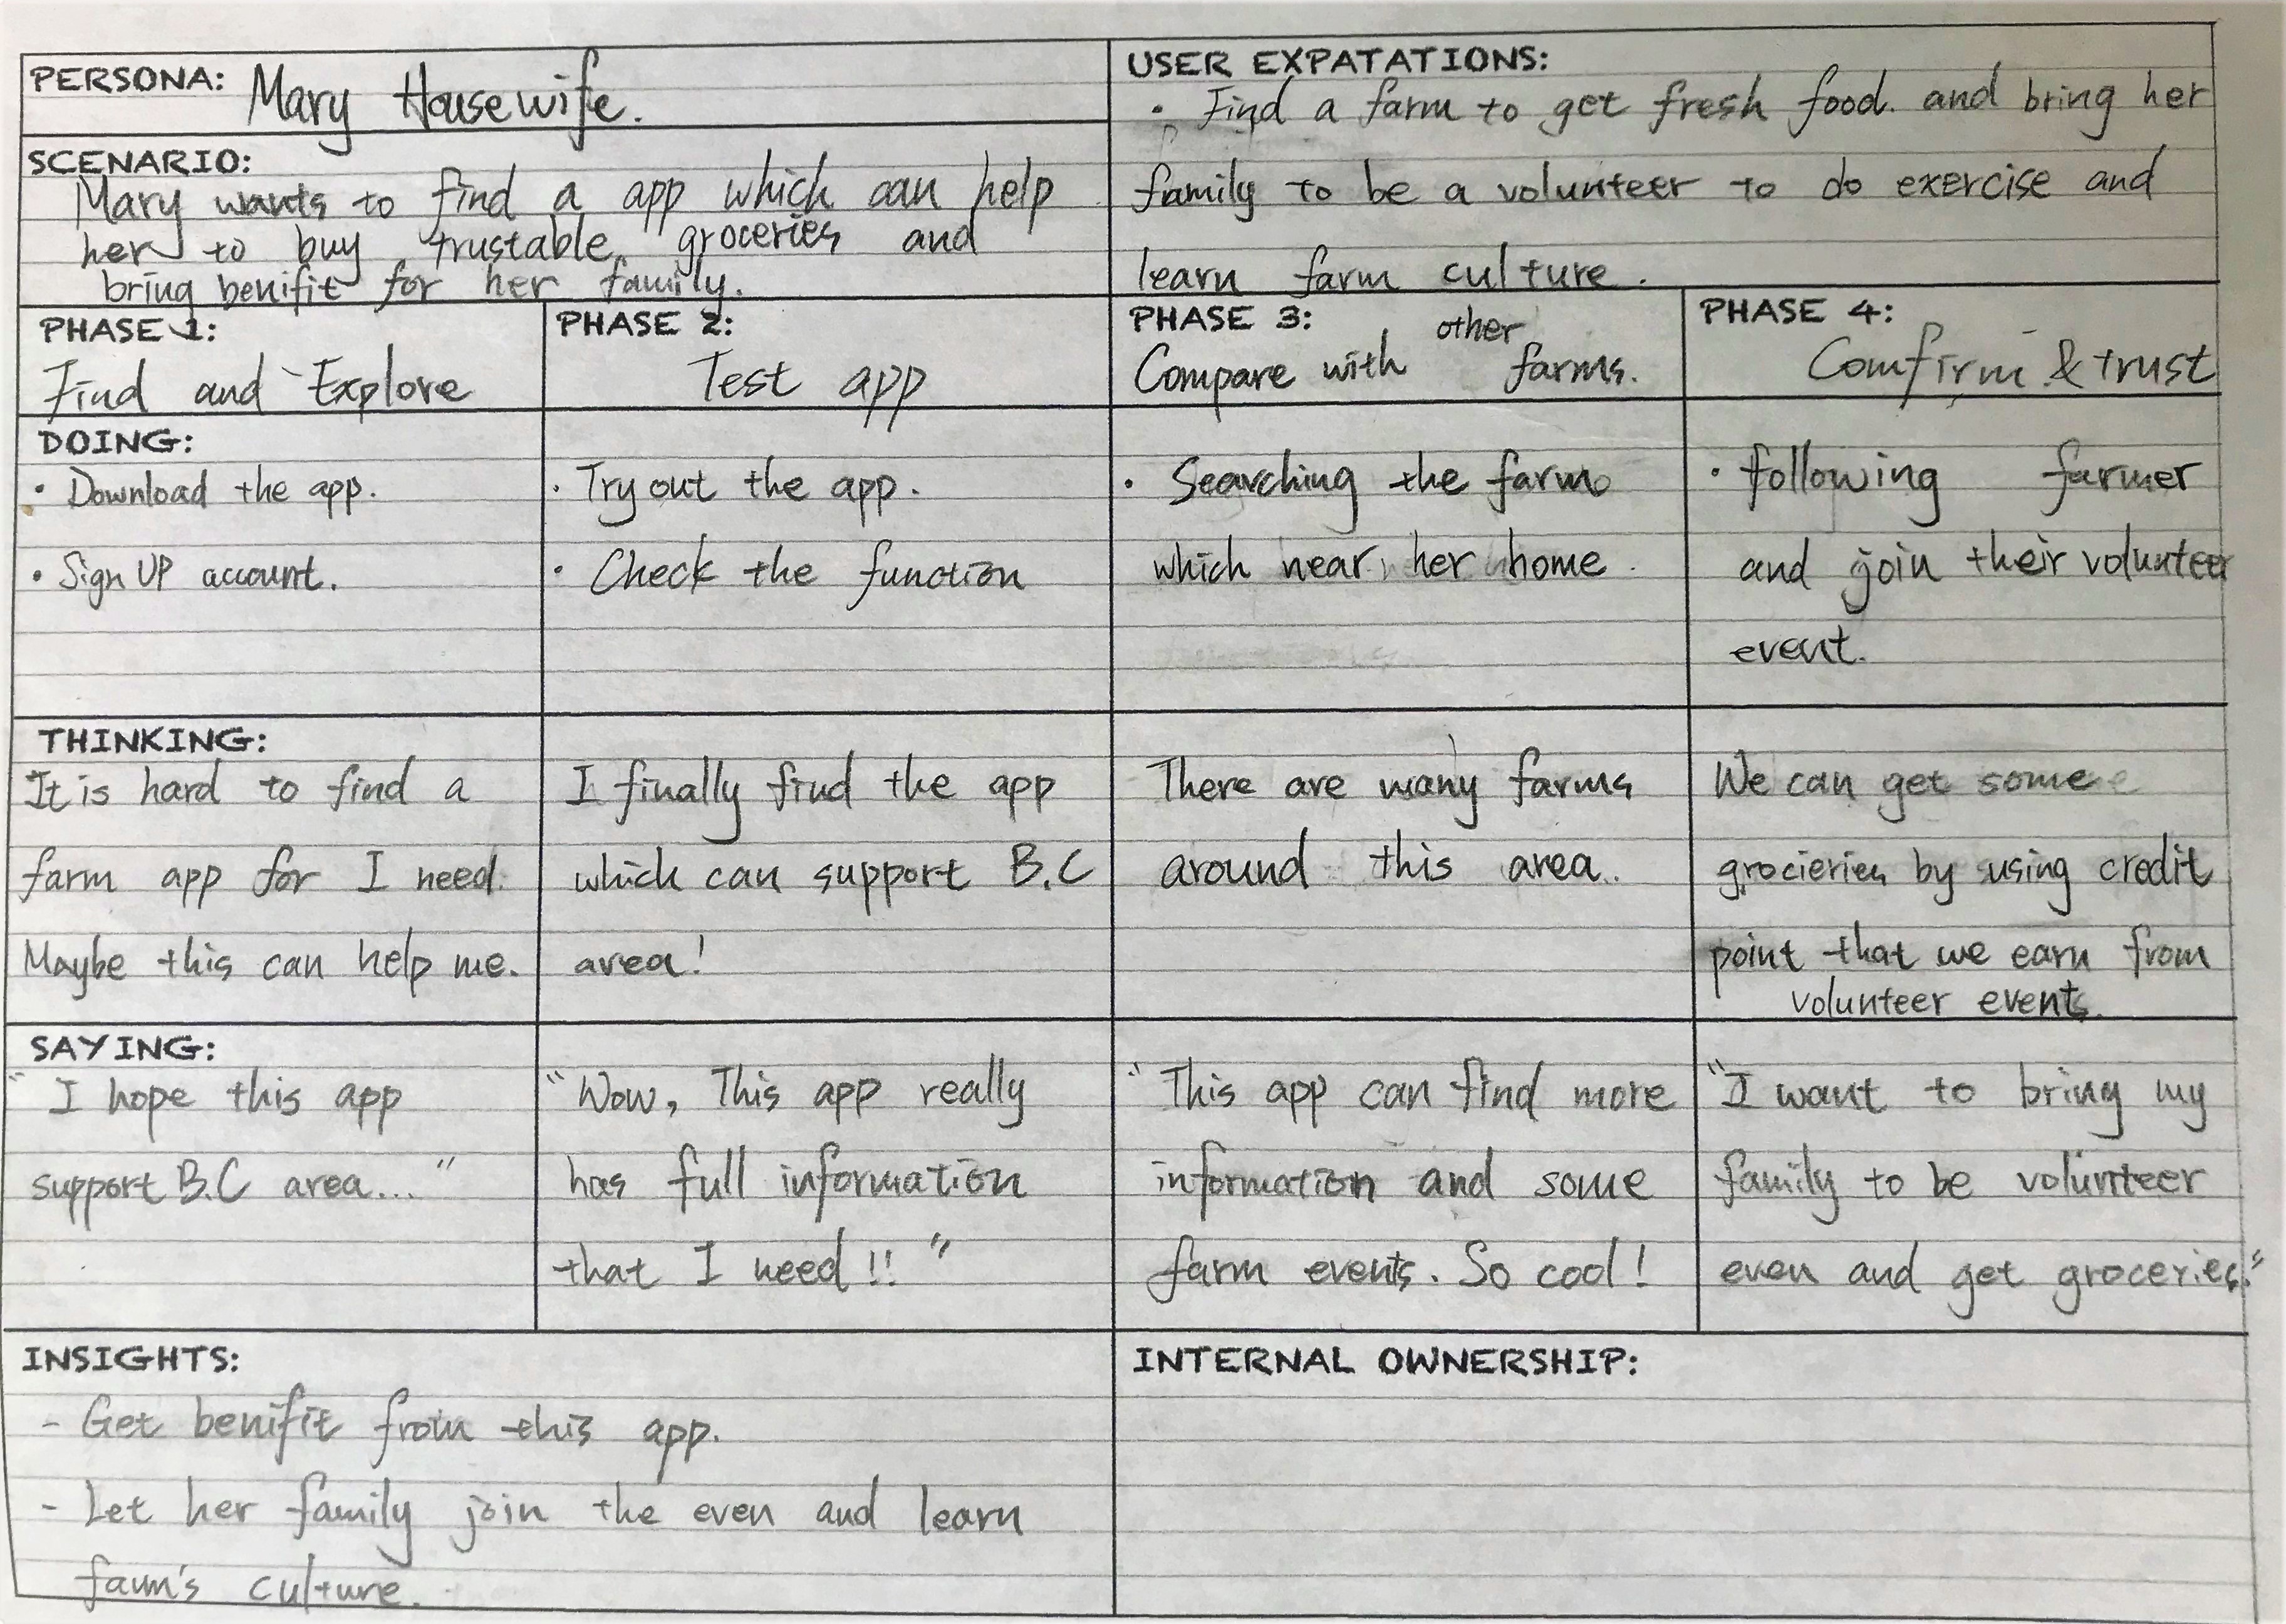 PERSONA: Mary Housewife.
SCENARIO:
Mary wants to find a app which can help
her to buy trustable groceries and
bring benifit for her family.
USER EXPATATIONS:
· Find a farm to get fresh food. and bring her
family to be a volunteer to do exercise and
learn farm culture.
PHASE 1:
Find and Explore
PHASE 2:
Test app
PHASE 3:
Compare with other farms.
PHASE 4:
Comfirm & trust
DOING:
· Download the app.
· Sign UP account.
· Try out the app.
· Check the function
· Searching the farm
which near her home.
· following farmer
and join their volunteer
event.
THINKING:
It is hard to find a
farm app for I need.
Maybe this can help me.
I finally find the app
which can support B.C
area!
There are many farms
around this area.
We can get some
grocieries by using credit
point that we earn from
volunteer events.
SAYING:
"I hope this app
support B.C area..."
"Wow, This app really
has full information
that I need!!"
"This app can find more
information and some
farm events. So cool!
"I want to bring my
family to be volunteer
even and get groceries."
INSIGHTS:
- Get benifit from this app.
- Let her family join the even and learn
farm's culture.
INTERNAL OWNERSHIP: